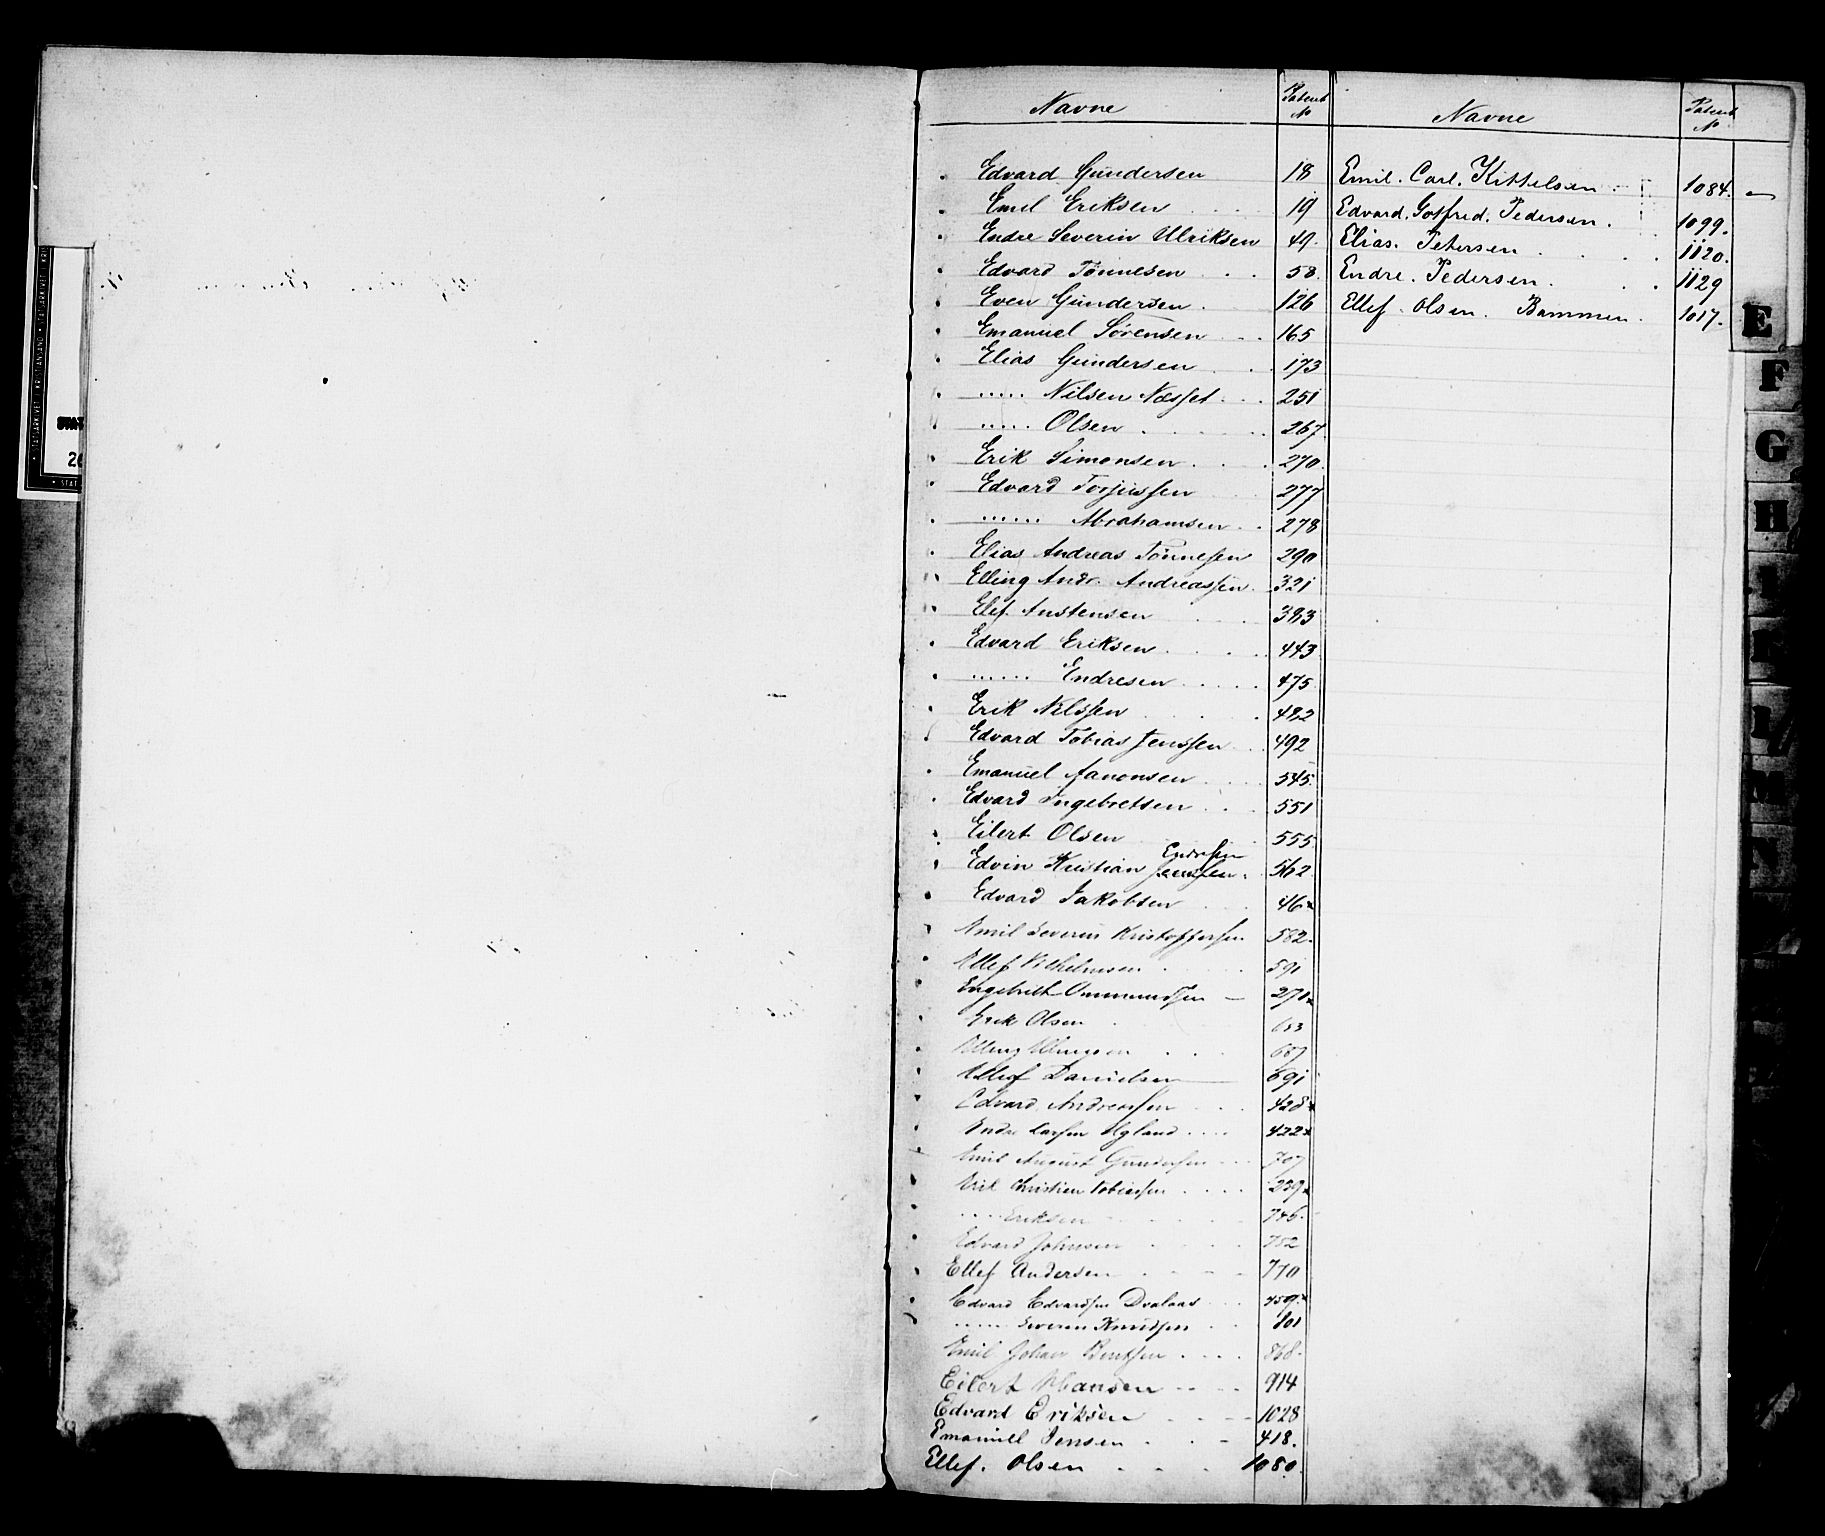 Navne Patent No
Edvard Gundersen 18
Emil Eriksen 19
Endre Severin Ulriksen 49
Edvard Tönnesen 58
Even Gundersen 126
Emanuel Sørensen 165
Elias Gundersen 173
" Nilsen Næsset 251
" Olsen 267
Erik Simonsen 270
Edvard Torjussen 277
" Abrahamsen 278
Elias Andreas Tönnesen 290
Elling Andr. Andreassen 321
Elef Austensen 383
Edvard Eriksen 443
" Endresen 475
Erik Nilssen 482
Edvard Tobias Jenssen 492
Emanuel Aanonsen 545
Edvard Ingebretsen 551
Eilert Olsen 555
Endresen
Edvin Kristian Jenssen 562
Edvard Jakobsen 46x
Emil Severin Kristoffersen 582
Ellef Vilhelmsen 591
Engebrett Ommundsen 271x
Erik Olsen 683
Elling Ellingsen 687
Ellef Danielsen 691
Edvard Andreassen 428x
Endre Larsen Hyland 422x
Emil August Gundersen 707
Erik Christian Tobiassen 239x
" Eriksen 746
Edvard Johnsen 752
Ellef Andersen 770
Edvard Edvardsen Dvalaas 459x
" Severin Knudsen 801
Emil Johan Bentsen 868
Eilert Hansen 914
Edvard Eriksen 1028
Emanuell Jensen 418.
Ellef. Olsen 1080.
Navne Patent No
Emil. Carl. Kittelsen 1084.
Edvard. Gotfred. Pedersen. 1099.
Elias. Petersen 1120.
Endre. Pedersen. 1129
Ellef. Olsen. Bommen. 1017.
E
F
G
H
STATSARKIVET I KRISTIANSAND
STAT
26